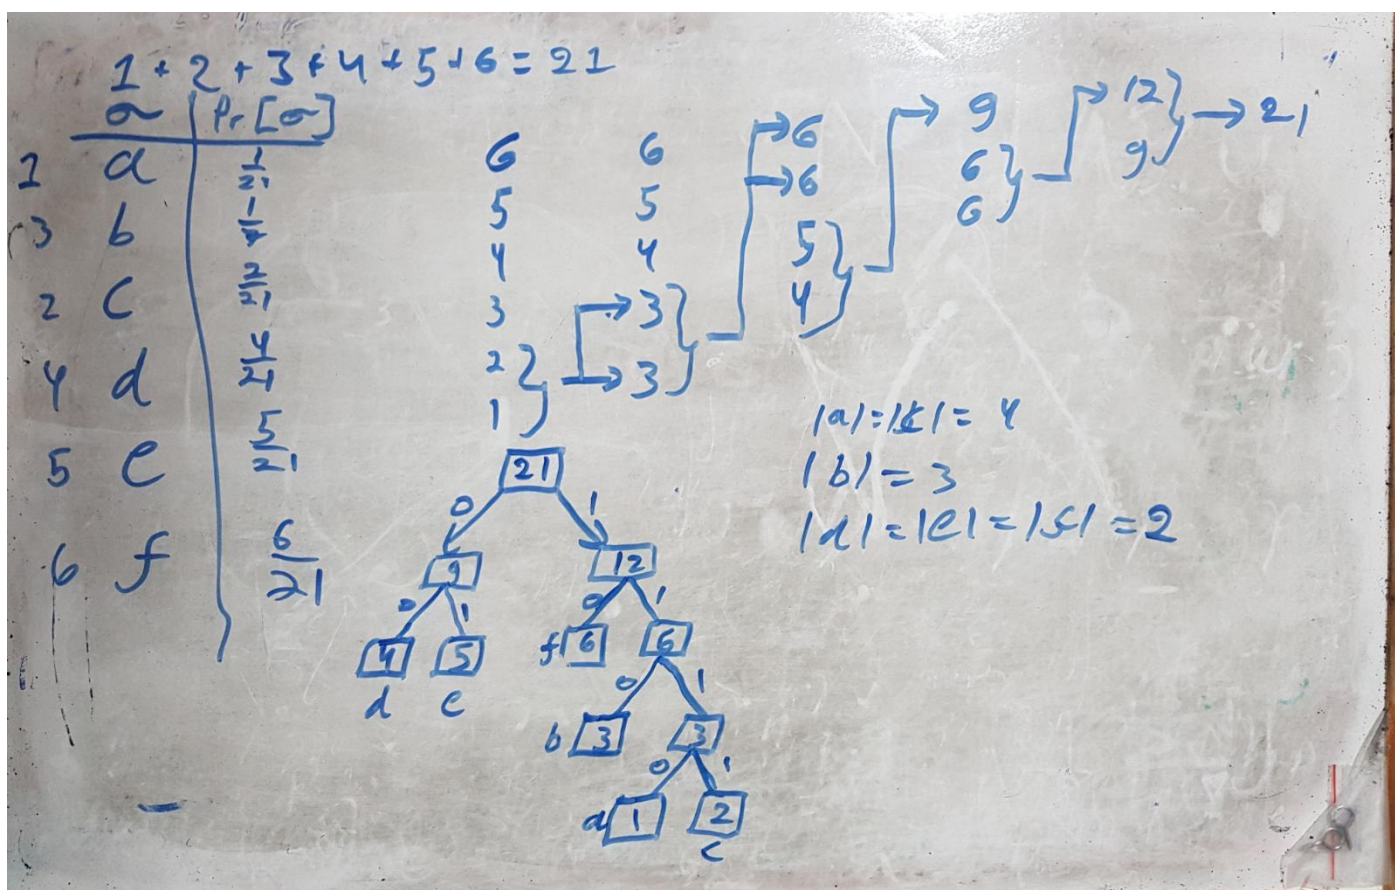 1 + 2 + 3 + 4 + 5 + 6 = 21
σ Pr[σ]
1 a 1/21
3 b 1/7
2 c 2/21
4 d 4/21
5 e 5/21
6 f 6/21
6 6 →6 → 9 → 12 } → 21
5 5 →6 6 } 9
4 4 5 } 6
3 → 3 } 4
2 } → 3
1
|a|=|c|= 4
|b| = 3
|d|=|e|=|f|=2
21
0 1
9 12
0 1 0 1
4 5 f 6 6
d e 0 1
b 3 3
0 1
a 1 2
c